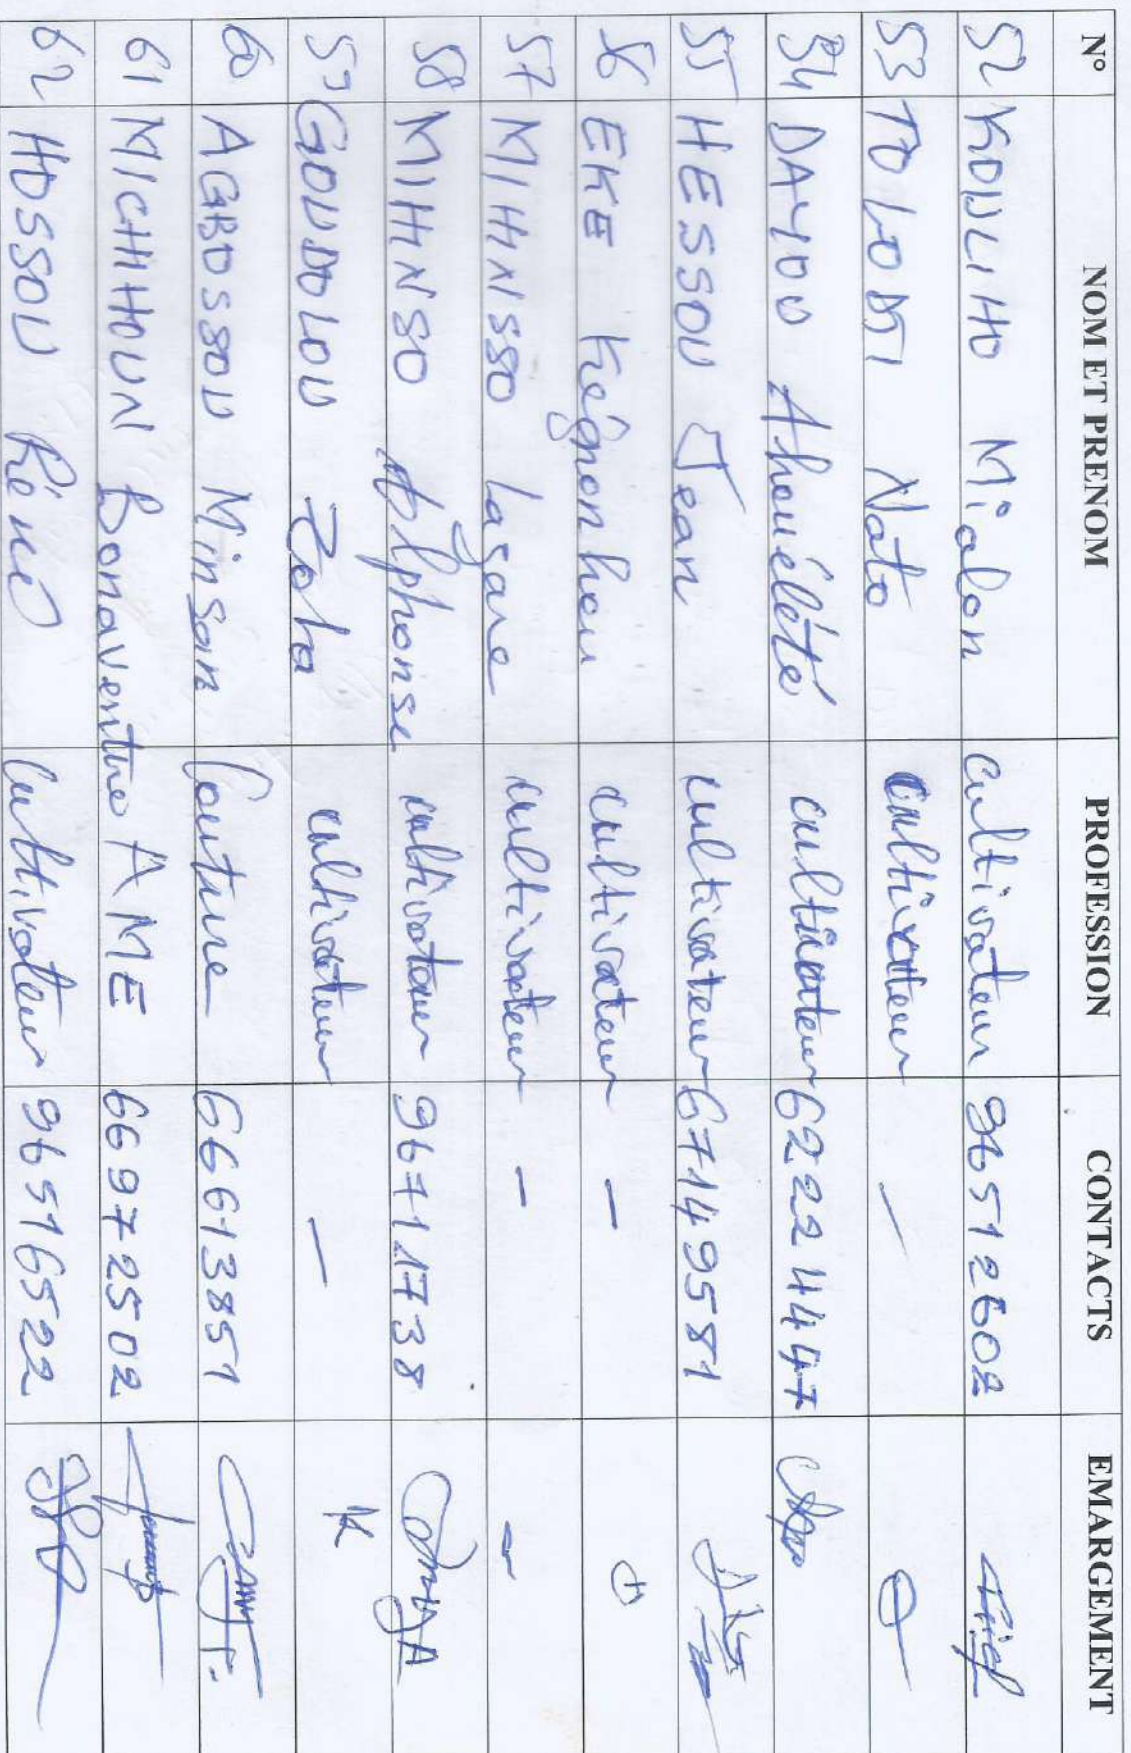 N° NOM ET PRENOM PROFESSION CONTACTS EMARGEMENT
52 KOULIHO Mialon cultivateur 96512602
53 TOLODJI Nato cultivateur —
54 DAYOU Ahouélété cultivateur 62224447
55 HESSOU Jean cultivateur 67149581
56 EKE Kégnonhou cultivateur —
57 MIHINSSO Lagare cultivateur —
58 MIHINSO Alphonse cultivateur 96711738
59 GOUDOLOU Zoha cultivateur — K
60 AGBOSSOU Minsan Couture 66613851
61 MICHIHOUN Bonaventure AME 66972502
62 HOSSOU Réné Cultivateur 96516522